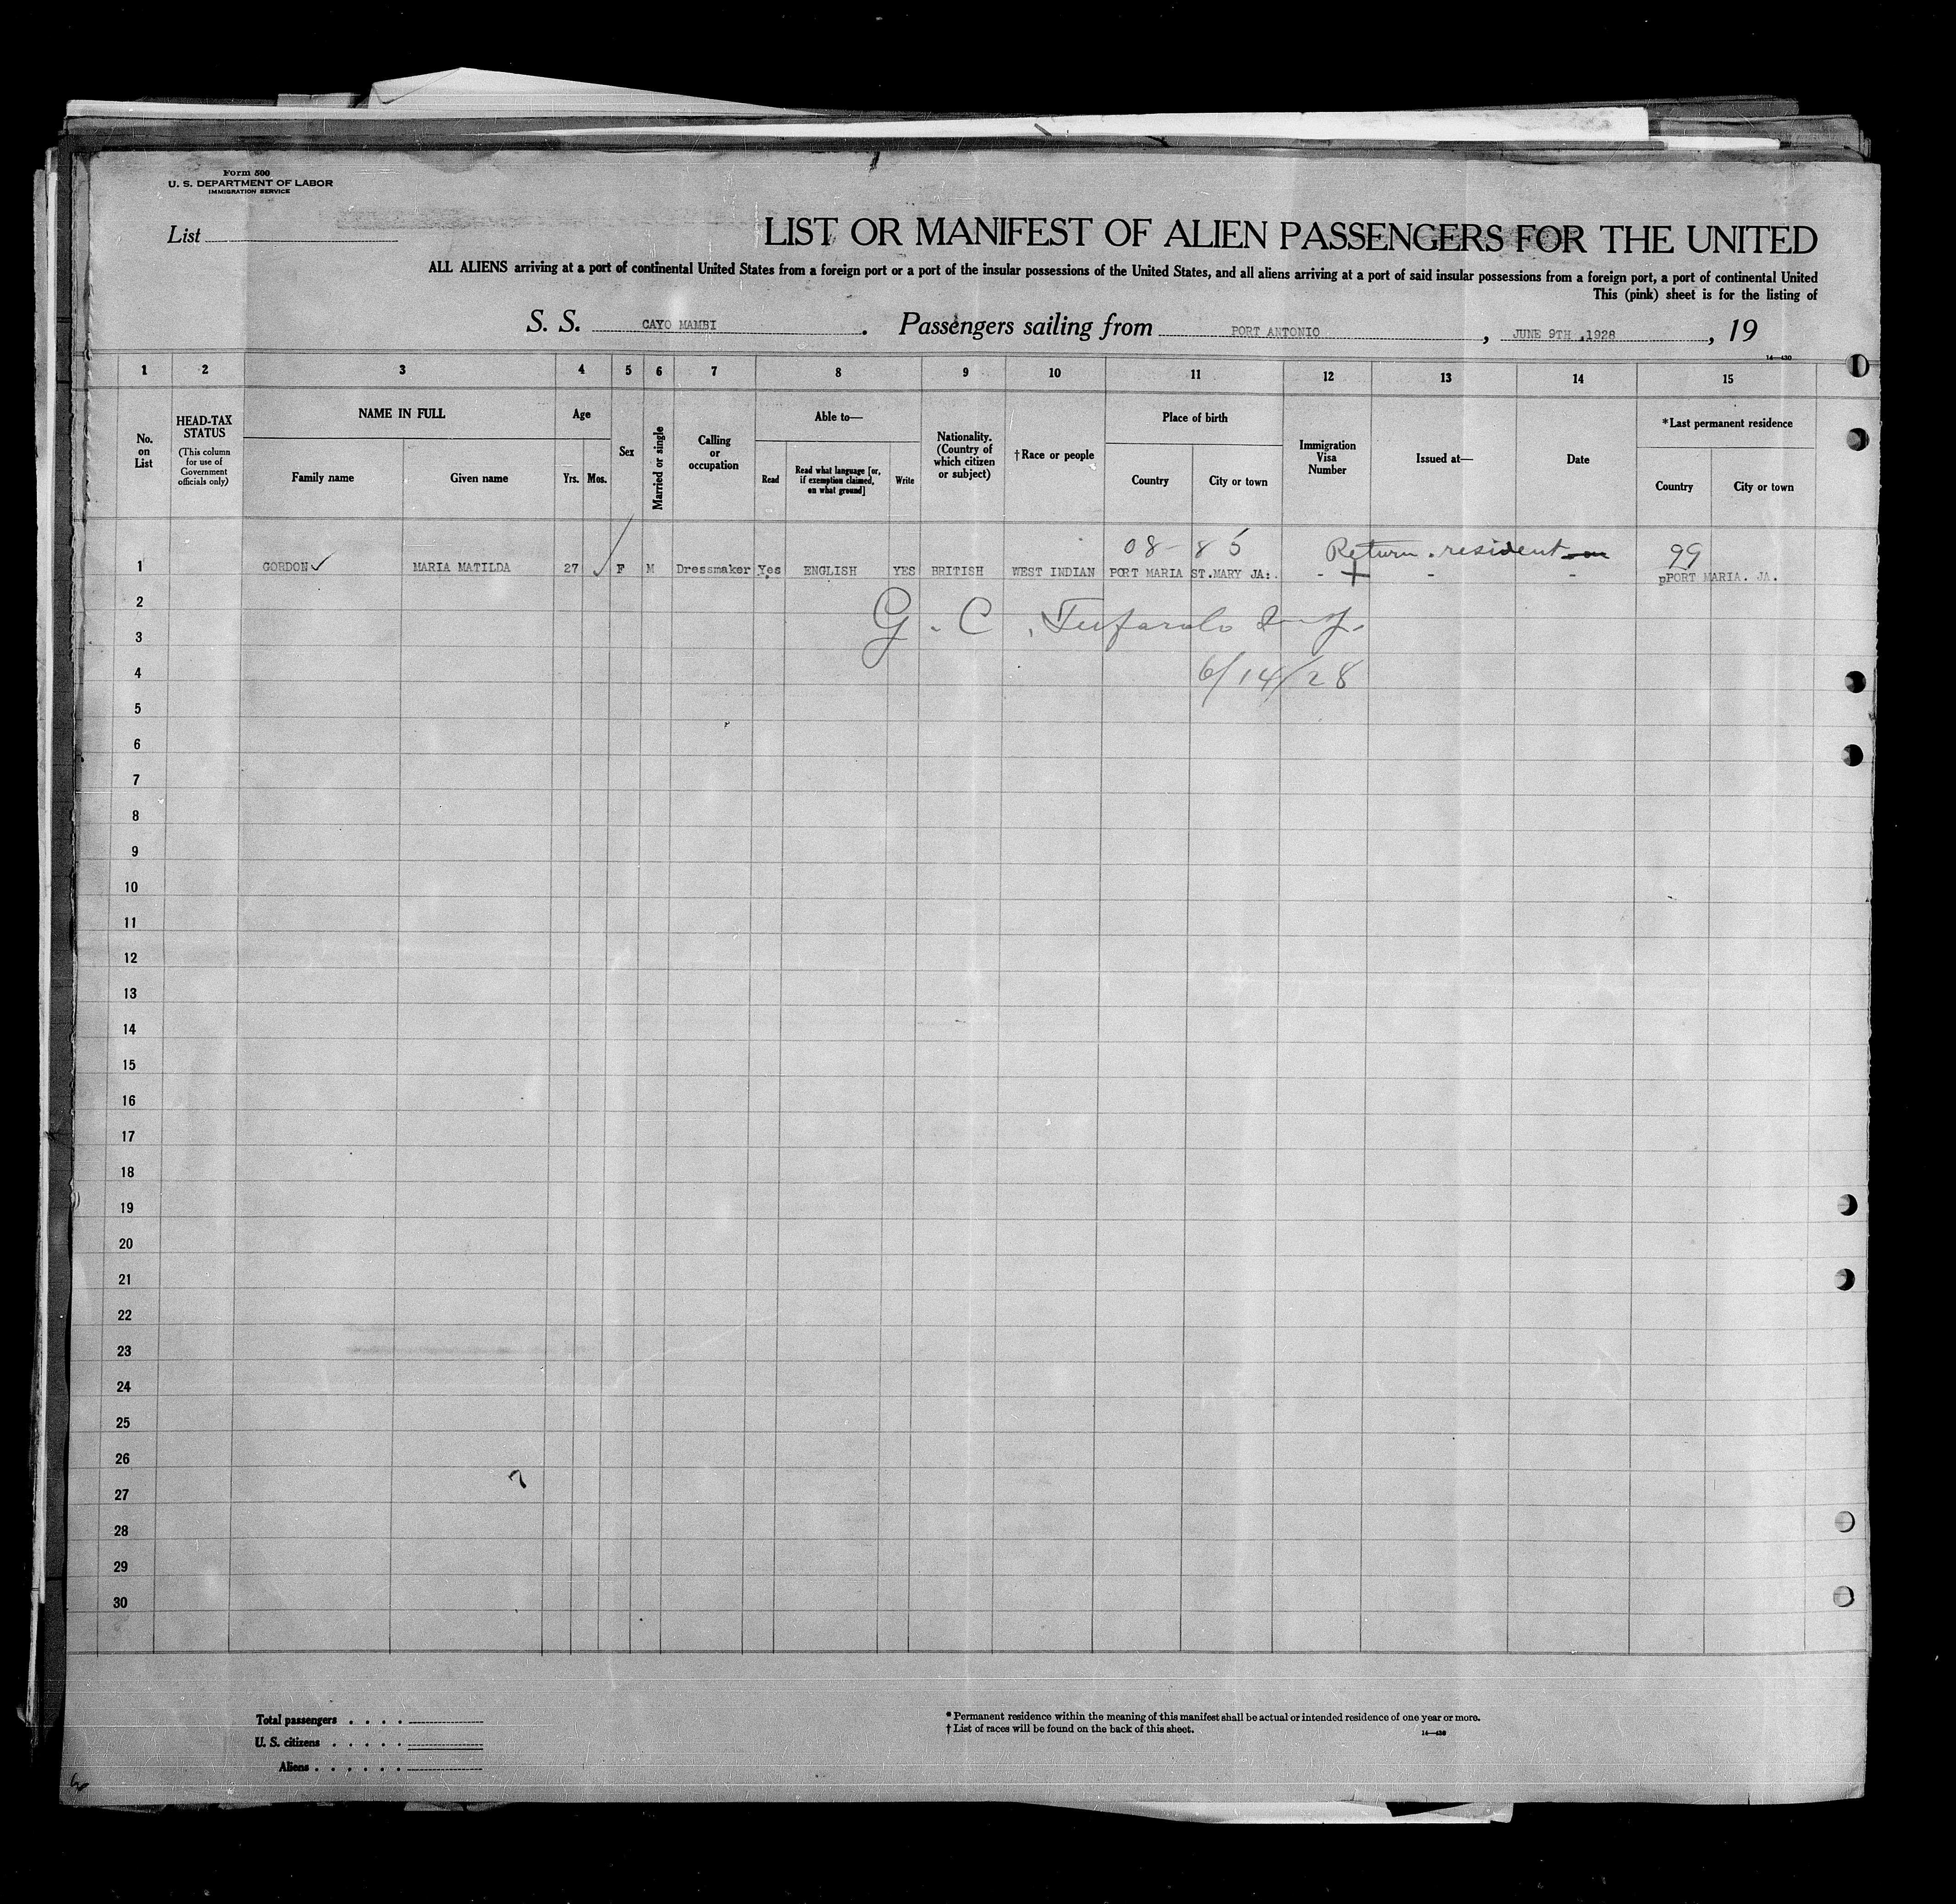 Form 500
U. S. DEPARTMENT OF LABOR
IMMIGRATION SERVICE
List
LIST OR MANIFEST OF ALIEN PASSENGERS FOR THE UNITED
ALL ALIENS arriving at a port of continental United States from a foreign port or a port of the insular possessions of the United States, and all aliens arriving at a port of said insular possessions from a foreign port, a port of continental United
This (pink) sheet is for the listing of
S. S. CAYO MAMBI . Passengers sailing from PORT ANTONIO , JUNE 9TH ,1928 , 19
14—430
1 2 3 4 5 6 7 8 9 10 11 12 13 14 15
No. on List
HEAD-TAX STATUS
(This column for use of Government officials only)
NAME IN FULL
Family name Given name
Age
Yrs. Mos.
Sex
Married or single
Calling or occupation
Able to—
Read
Read what language [or, if exemption claimed, on what ground]
Write
Nationality. (Country of which citizen or subject)
†Race or people
Place of birth
Country City or town
Immigration Visa Number
Issued at—
Date
*Last permanent residence
Country City or town
08-85 Return resident 99
1 GORDON MARIA MATILDA 27 F M Dressmaker Yes ENGLISH YES BRITISH WEST INDIAN PORT MARIA ST.MARY JA:. - - - pPORT MARIA. JA.
2
G. C.
3
4 6/14/28
5
6
7
8
9
10
11
12
13
14
15
16
17
18
19
20
21
22
23
24
25
26
27
28
29
30
Total passengers . . . .
U. S. citizens . . . . .
Aliens . . . . . .
* Permanent residence within the meaning of this manifest shall be actual or intended residence of one year or more.
† List of races will be found on the back of this sheet.
14—430